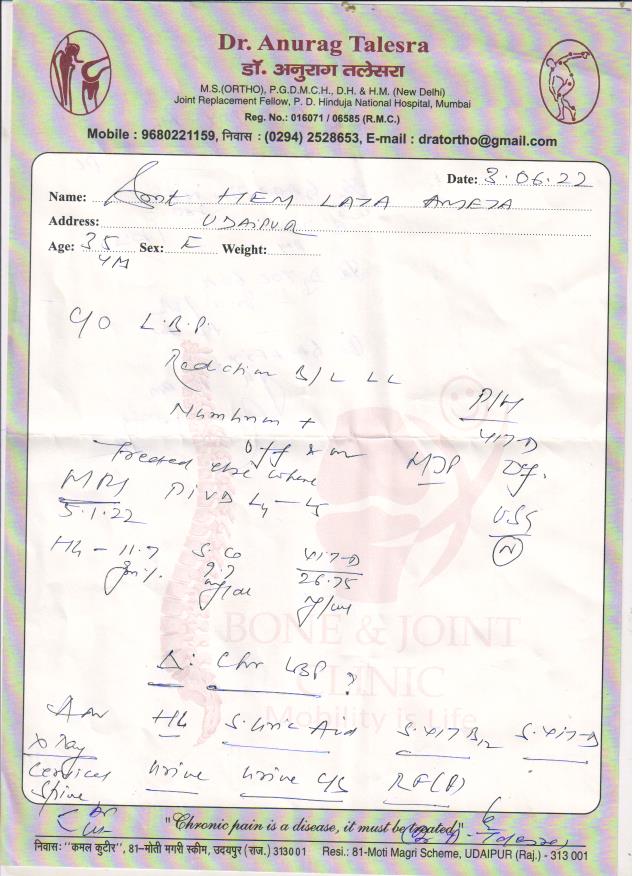 Dr. Anurag Talesra
डॉ. अनुराग तलेसरा
M.S.(ORTHO), P.G.D.M.C.H., D.H. & H.M. (New Delhi)
Joint Replacement Fellow, P. D. Hinduja National Hospital, Mumbai
Reg. No.: 016071 / 06585 (R.M.C.)
Mobile : 9680221159, निवास : (0294) 2528653, E-mail : dratortho@gmail.com
Date: 3.06.22
Name: Smt HEM LATA AMETA
Address: UDAIPUR
Age: 35 Sex: F Weight:
4M
C/O L.B.P.
Radiation B/L LL
Numbness +
P/H
VIT-D
Def.
Treated else where
MDP
MRI
5.1.22
PIVD L4-L5
USG
N
Hb - 11.7
gm%
S. Ca
9.7
mg/dl
VIT-D
26.75
BONE & JOINT
CLINIC
Mobility is Life
Δ: Chr LBP ?
Adv Hb S. Uric Acid S. VIT B12 S. VIT-D
X Ray
Cervical
Spine
Urine Urine C/S RF(P)
"Chronic pain is a disease, it must be treated"
निवास: "कमल कुटीर", 81-मोती मगरी स्कीम, उदयपुर (राज.) 313001 Resi.: 81-Moti Magri Scheme, UDAIPUR (Raj.) - 313 001